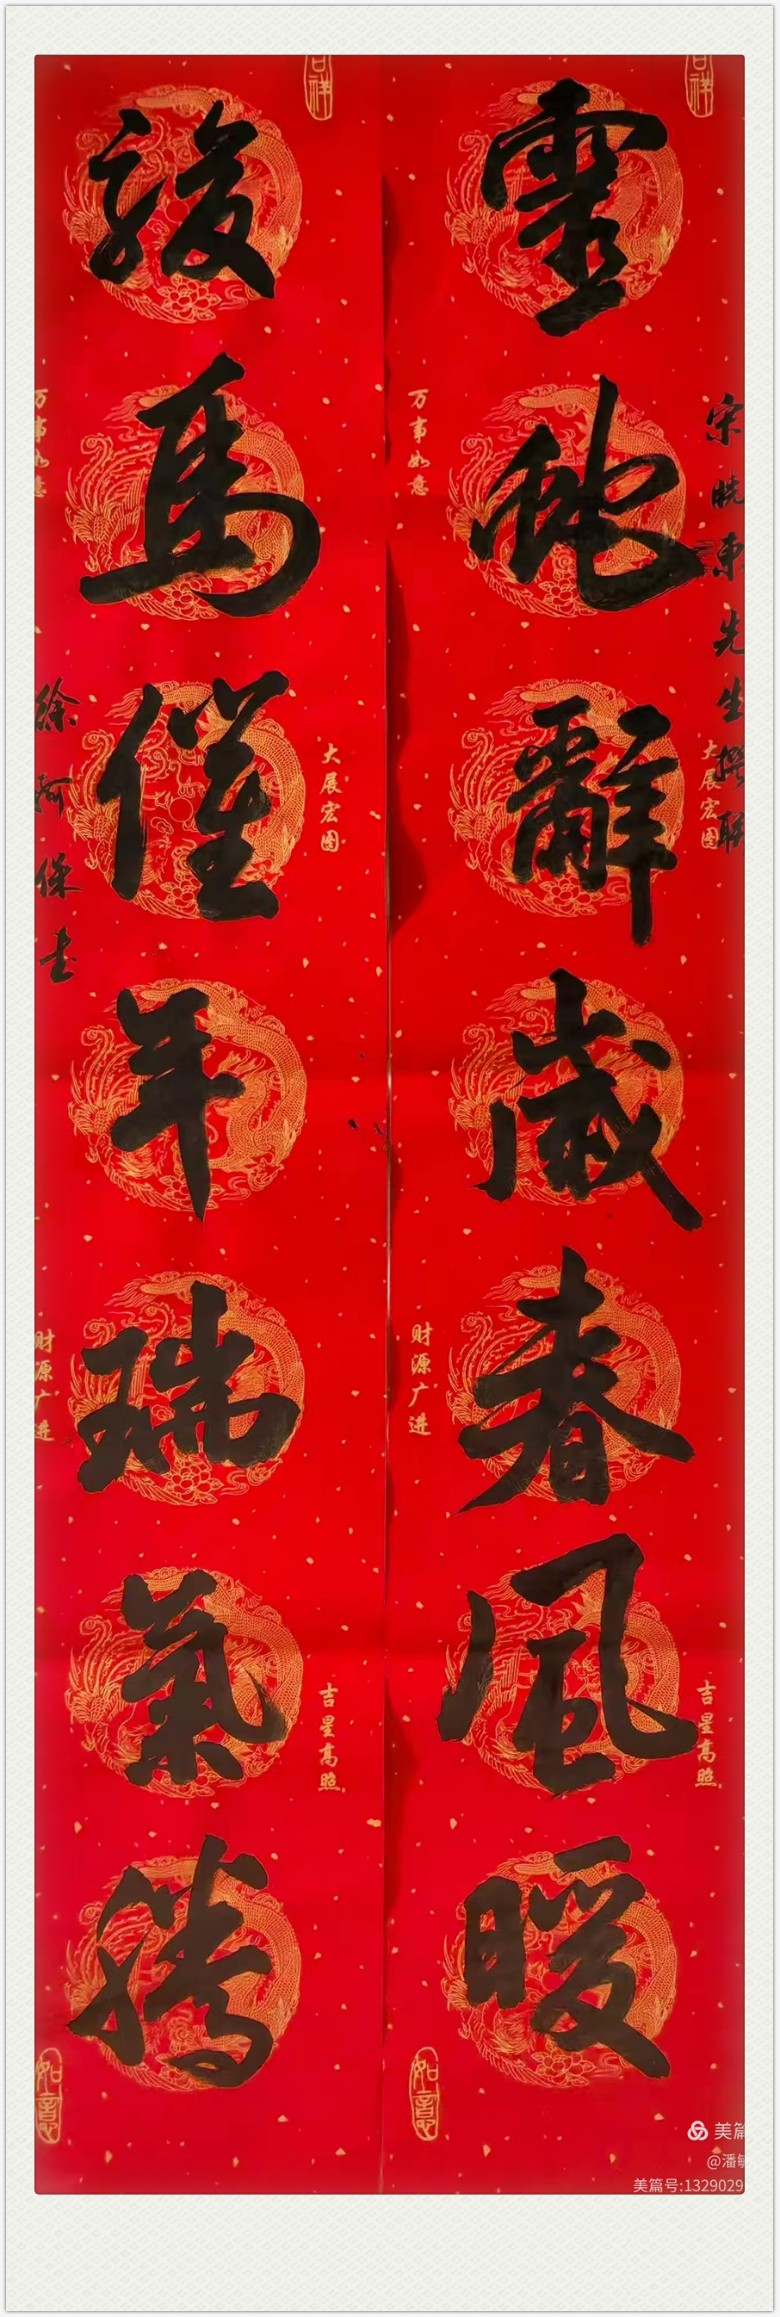 靈蛇辭歲春風暖
宋晓東先生撰联
駿馬催年瑞氣騰
徐 保书
吉祥
万事如意
大展宏图
财源广进
吉星高照
如意
吉祥
万事如意
大展宏图
财源广进
吉星高照
如意
美篇
@潘敏
美篇号:1329029